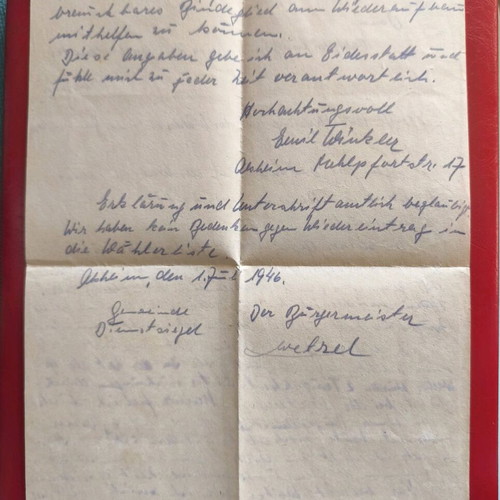 brauchbares Bindeglied am Wiederaufbau
mithelfen zu können.
Diese Angaben gebe ich an Eidesstatt und
fühle mich zu jeder Zeit verantwortlich.
Hochachtungsvoll
Emil Winkler
Mühlpfortstr. 17
Erklärung und Unterschrift amtlich beglaubigt
Wir haben kein Bedenken gegen Wiedereintrag in
die Wählerliste
den 1. Juli 1946.
Gemeinde Der Bürgermeister
Dienstsiegel
Wetzel